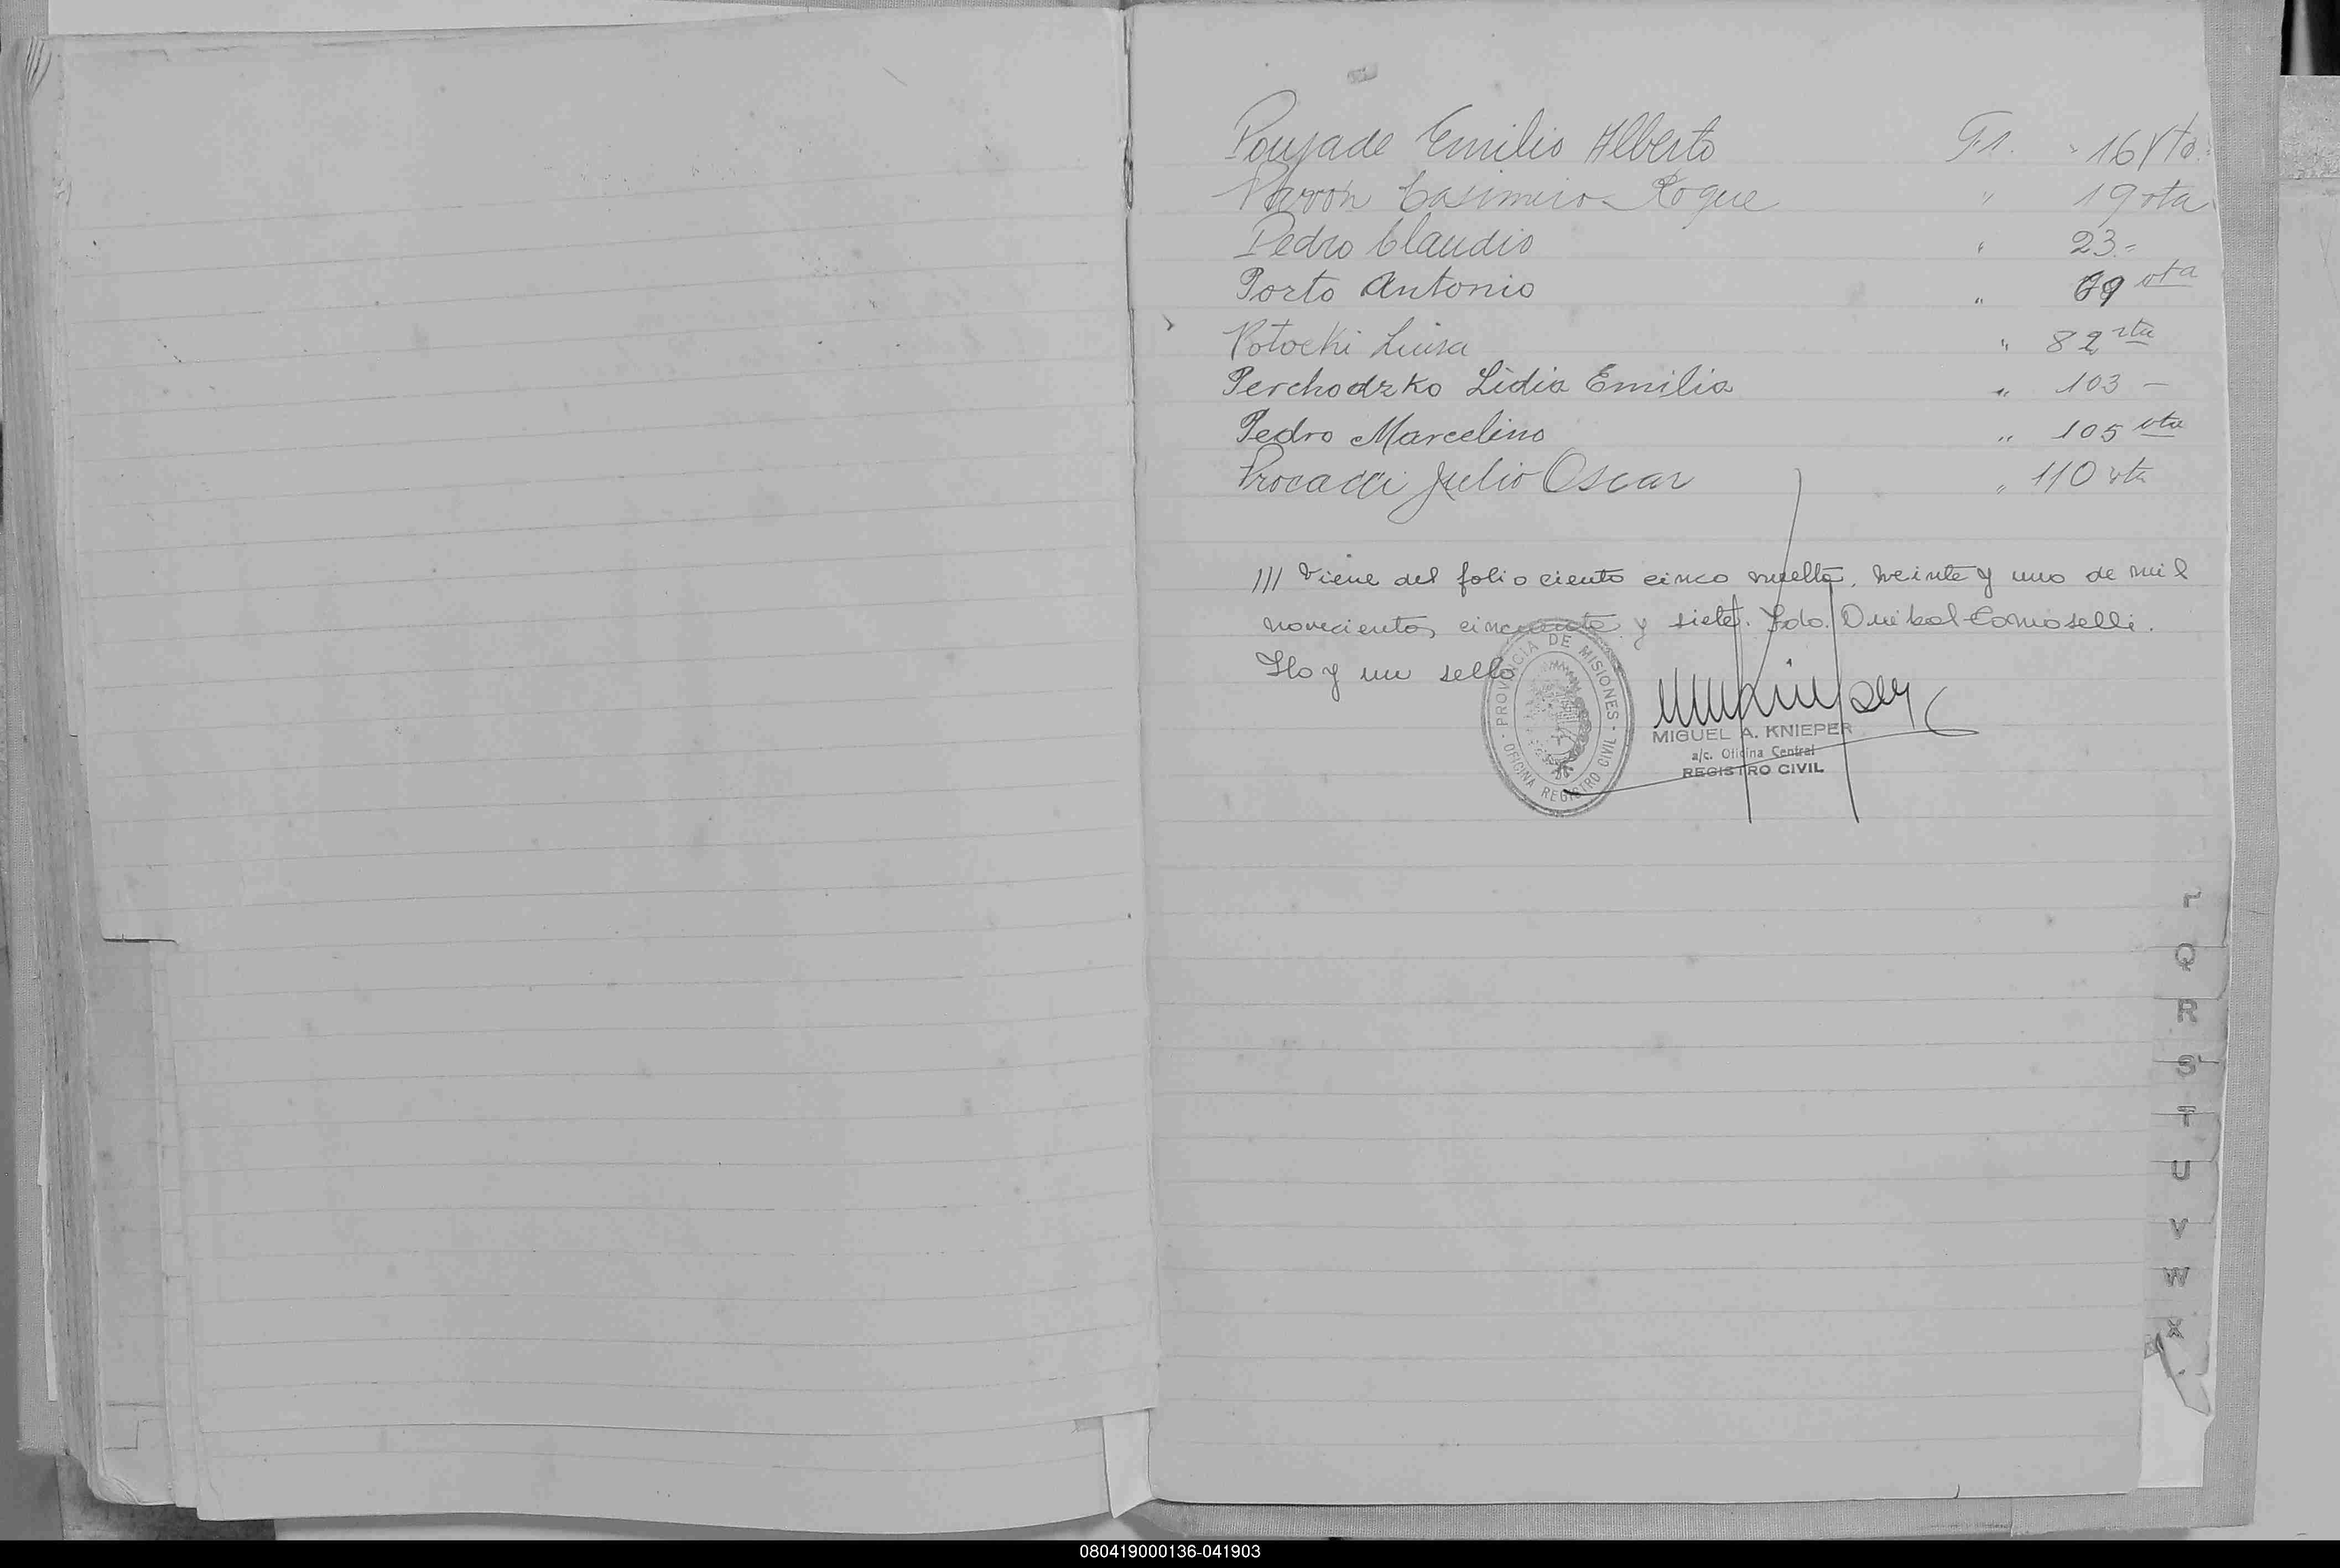 Poujade Emilio Alberto Fs. " 16 Vto.
Pavon Casimiro Roque " 19 vta
Pedro Claudio " 23.-
Porto Antonio " 69 vta
Potocki Luisa " 82 vta
Perchodzko Lidia Emilia " 103 -
Pedro Marcelino " 105 vta
Procacci Julio Oscar " 110 vta
/// viene del folio ciento cinco vuelta, veinte y uno de mil
novecientos cincuenta y siete. Fdo. Duibal Comoselli.
Hay un sello
PROVINCIA DE MISIONES
OFICINA REGISTRO CIVIL
MIGUEL A. KNIEPER
a/c. Oficina Central
REGISTRO CIVIL
Q
R
S
T
U
V
W
X
080419000136-041903